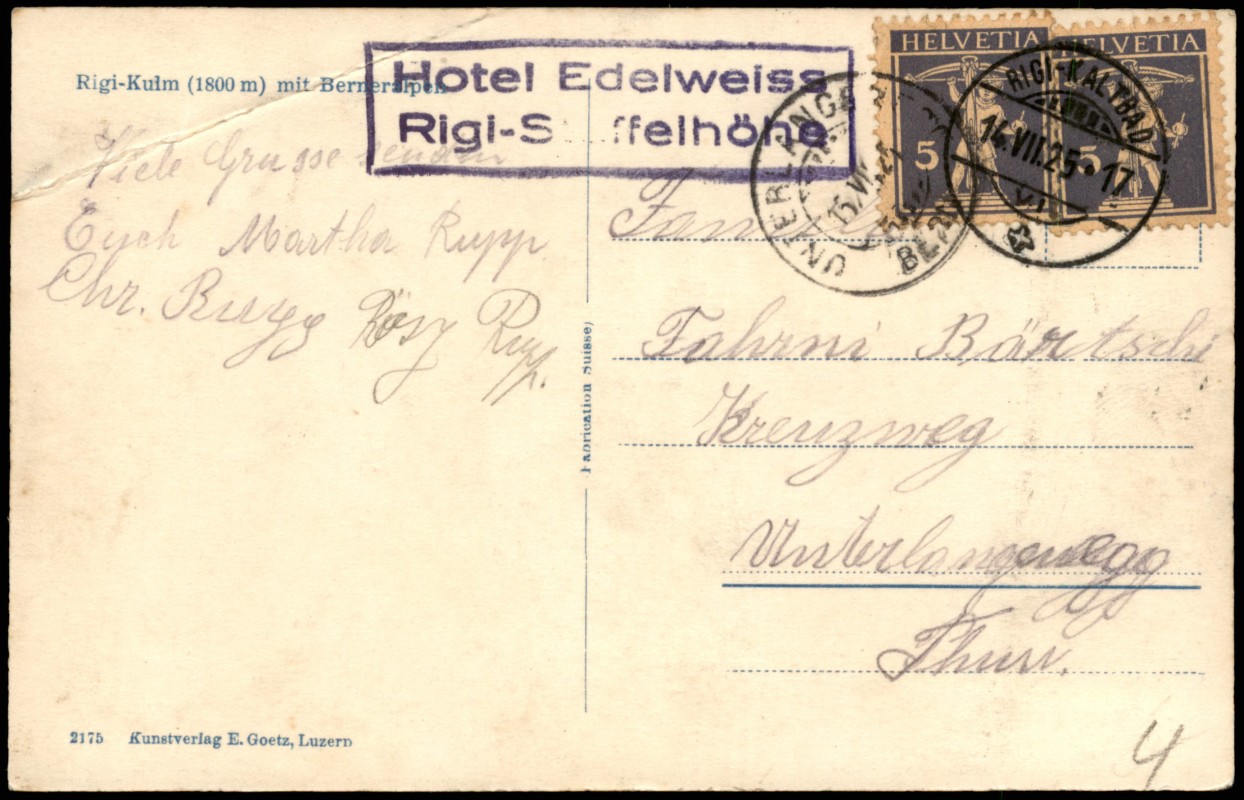 Rigi-Kulm (1800 m) mit Berneralpen
Hotel Edelweiss
Rigi-S ffelhöhe
HELVETIA
HELVETIA
5
5
RIGI-KALTBAD
14.VII.25•17
VI
UNTERLANGE
15.VII.25
BERN
Viele Grusse senden
Euch Martha Rupp
Chr. Rupp Rösy Rupp.
Familie
Fahrni Bärtschi
Kreuzweg
Unterlangenegg
Thun.
Fabrication Suisse
2175 Kunstverlag E. Goetz, Luzern
4